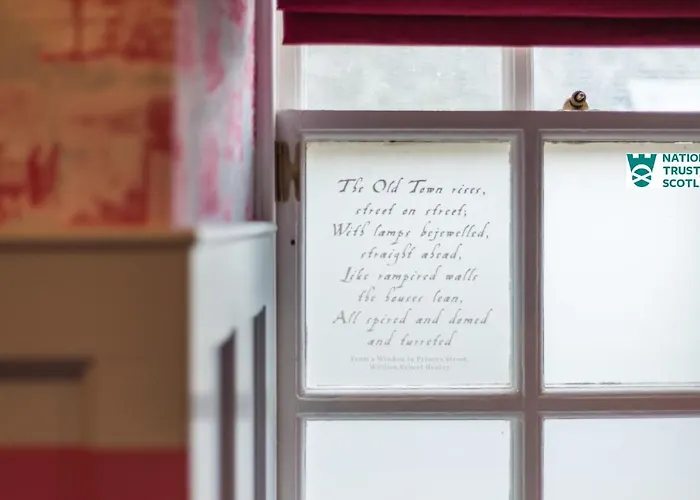 NATION
TRUST
SCOTL
The Old Town rises,
street on street;
With lamps bejewelled,
straight ahead,
Like rampired walls
the houses lean,
All spired and domed
and turreted
From a Window in Princes Street,
William Ernest Henley